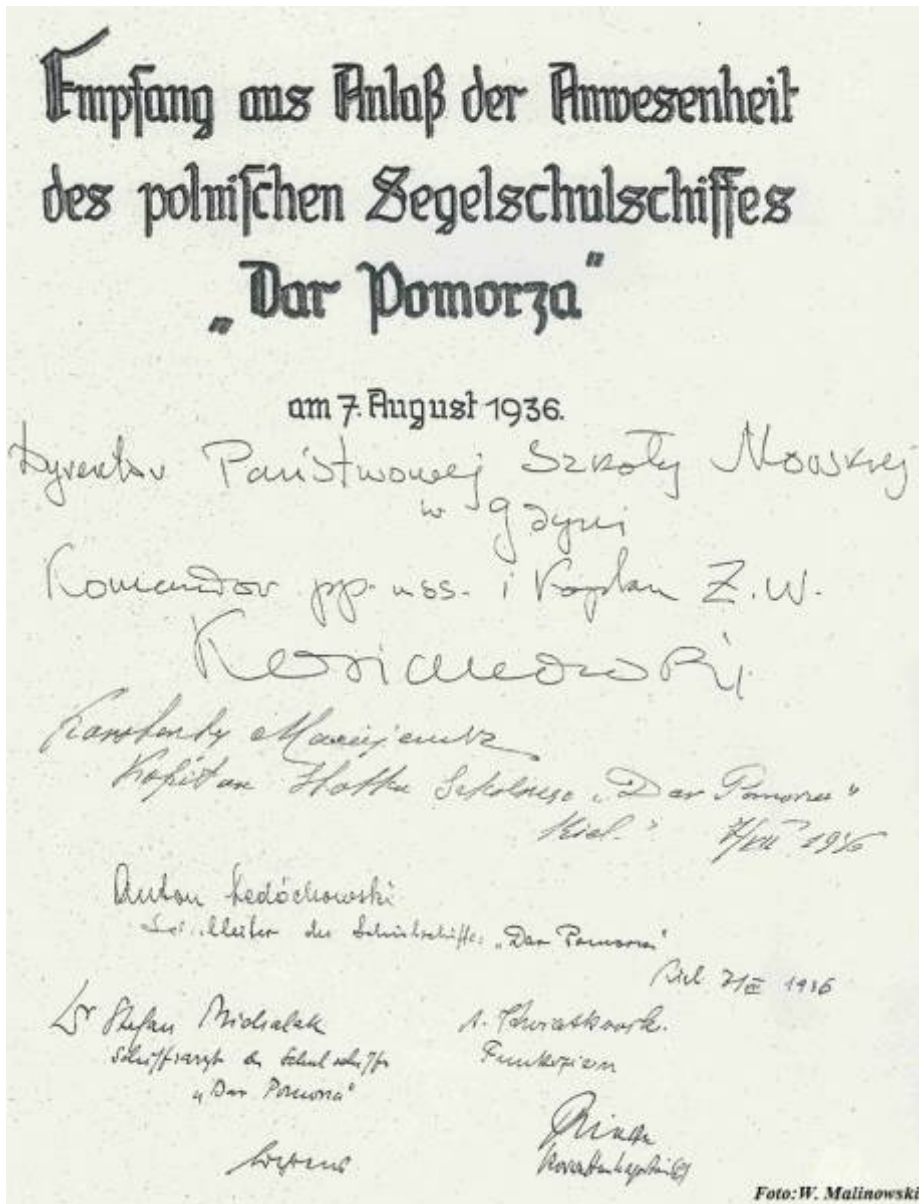 Empfang aus Anlaß der Anwesenheit
des polnischen Segelschulschiffes
„Dar Pomorza"
am 7. August 1936.
Dyrektor Państwowej Szkoły Morskiej
w Gdyni
Komandor pp. i Kapitan Ż.W.
Konstanty Maciejewicz
Kapitan Statku Szkolnego „Dar Pomorza"
Kiel. 1936
Anton Ledóchowski
der Schulschiffes „Dar Pomorza"
Kiel 7/VIII 1936
Dr Stefan Michalak
Schiffsarzt d. Schulschiffs
„Dar Pomorza"
Korvettenkapitän
Foto:W. Malinowski